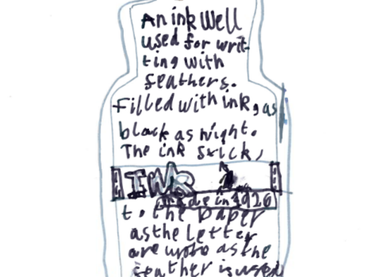 An ink Well
used for writ-
ting with
feathers.
Filled with ink, as
black as night.
The ink stick,
INK
made in 1920
to the paper
as the letter
are wroto as the
feather is used